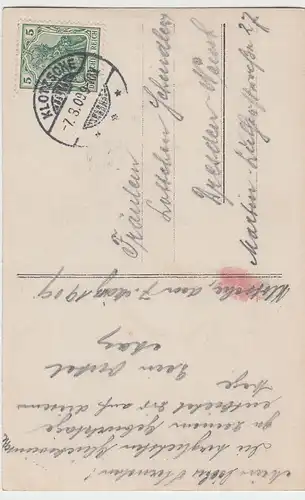 5
DEUTSCHES REICH
5
KLOTZSCHE
-7.3.09
Fräulein
Lottchen Schindler
Dresden Neust.
Martin Lutherstraße 27
Klotzsche, am 7. März 1909
Mein liebes
Die herzlichsten Glückwünsche
zu Deinem Geburtstage
entbietet Dir auf diesem
Wege
Dein Onkel
Max